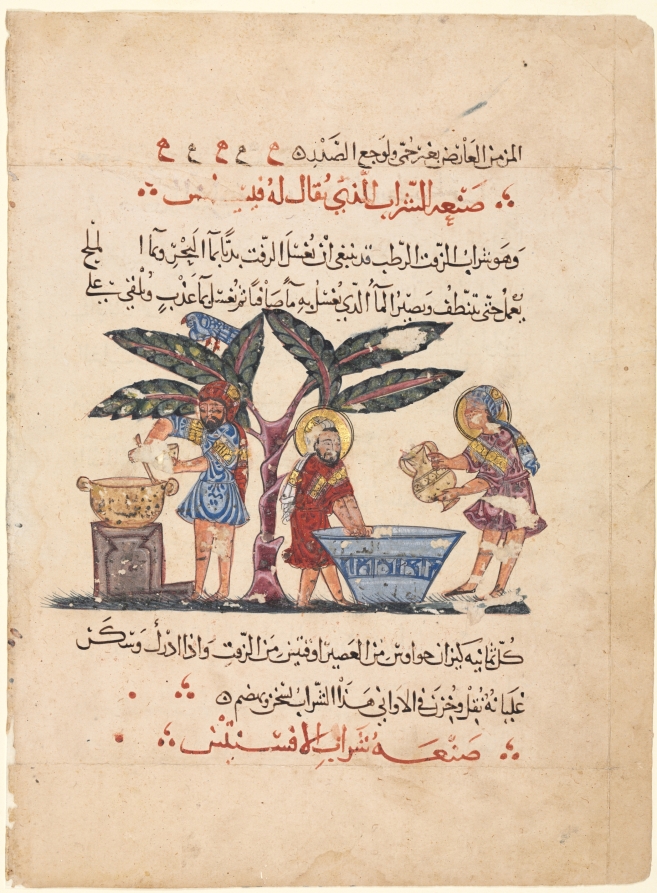 المزمن العارض بغير حمى ولوجع الصدر
صنعه الشراب الذي يقال له
وهو شراب الزفت الرطب قد ينبغي ان يغسل الزفت بديا بما البحر وبما الملح
يعمل حتى يتنظف ويصير الما الذي يغسل به ما صافيا ثم يغسل بما عذب ويلقى على
كل ثمانيه كيزان من العصير اوقيتين من الزفت واذا ادرك وسكن
غليانه نقل وخزن في الاواني هذا الشراب يسخن ويهضم
صنعه شراب الافسنتين